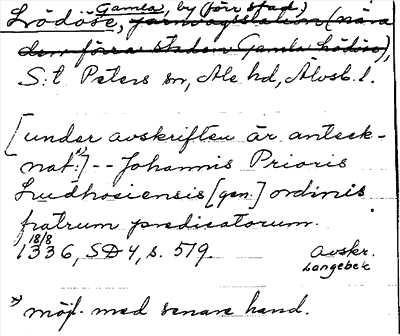 Lödöse, Gamla, by (förr stad,)
järnvägsstation (nära
den förra staden Gamla Lödöse),
S:t Peters sn, Ale hd, Älvsb. l.
[under avskriften är anteck-
nat:*)] -- Johannis Prioris
Ludhosiensis [gen.] ordinis
fratrum predicatorum.
18/8
1336, SD 4, s. 579. Avskr.
Langebek
*) möjl. med senare hand.